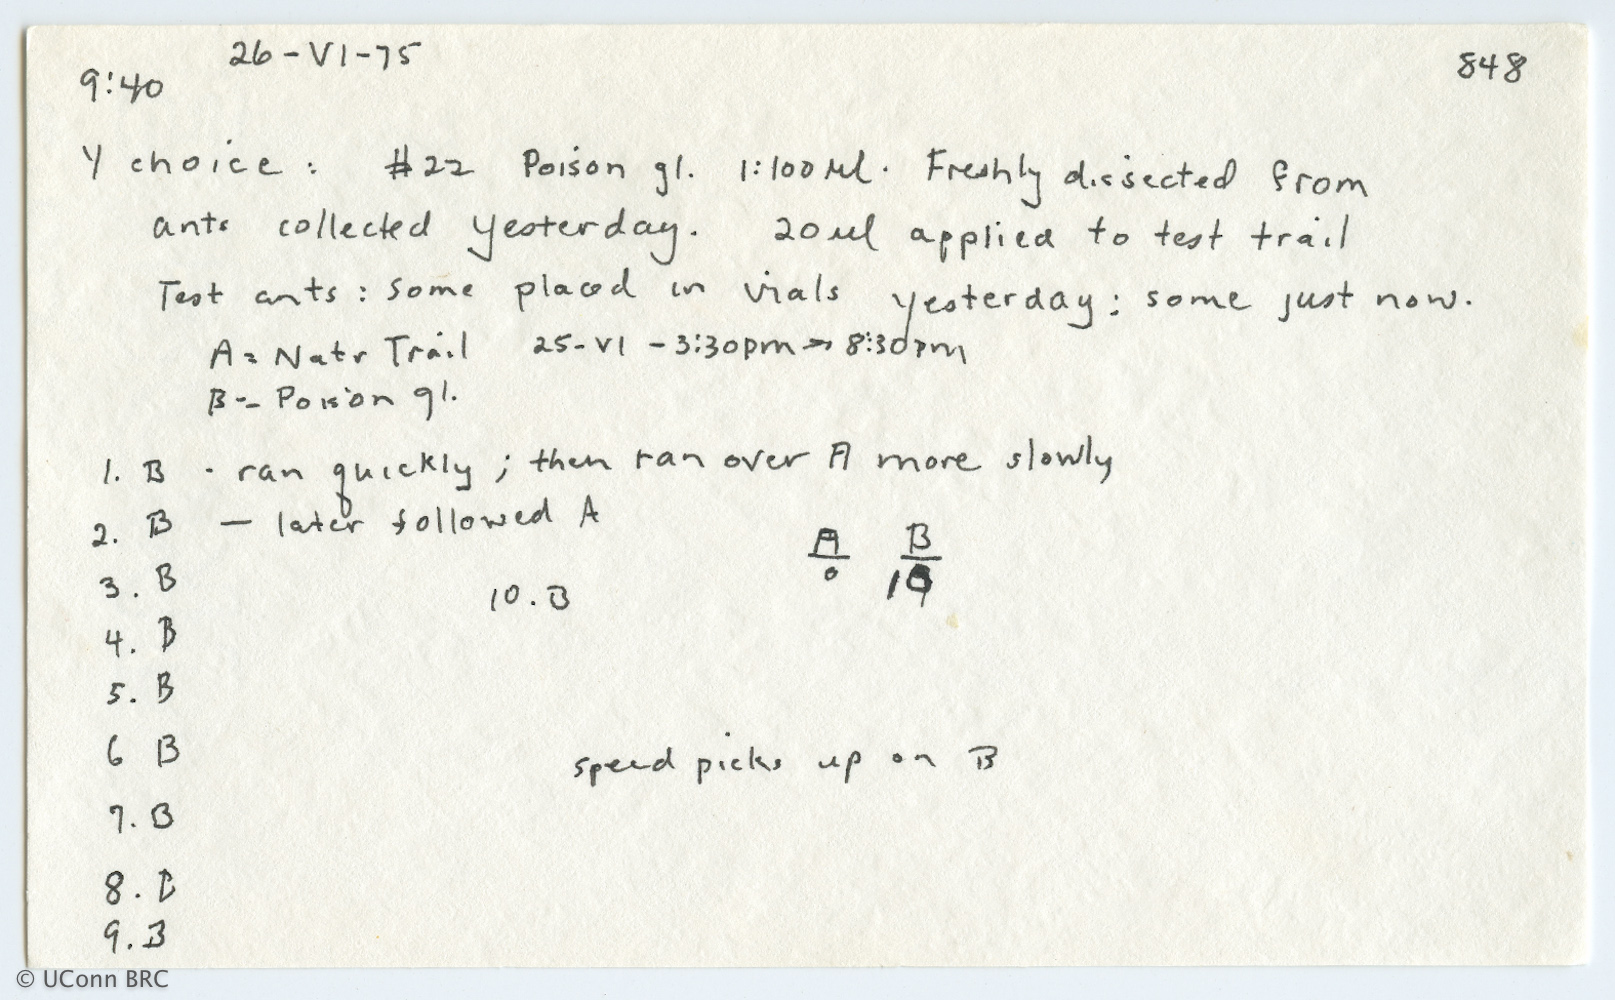 26-VI-75
848
9:40
Y choice: #22 Poison gl. 1:100 µl. Freshly dissected from
ants collected yesterday. 20 µl applied to test trail
Test ants: some placed in vials yesterday; some just now.
A = Natr Trail 25-VI - 3:30pm → 8:30pm
B = Poison gl.
1. B - ran quickly; then ran over A more slowly
2. B — later followed A
A B
0 10
3. B
10. B
4. B
5. B
6 B
speed picks up on B
7. B
8. B
9. B
© UConn BRC